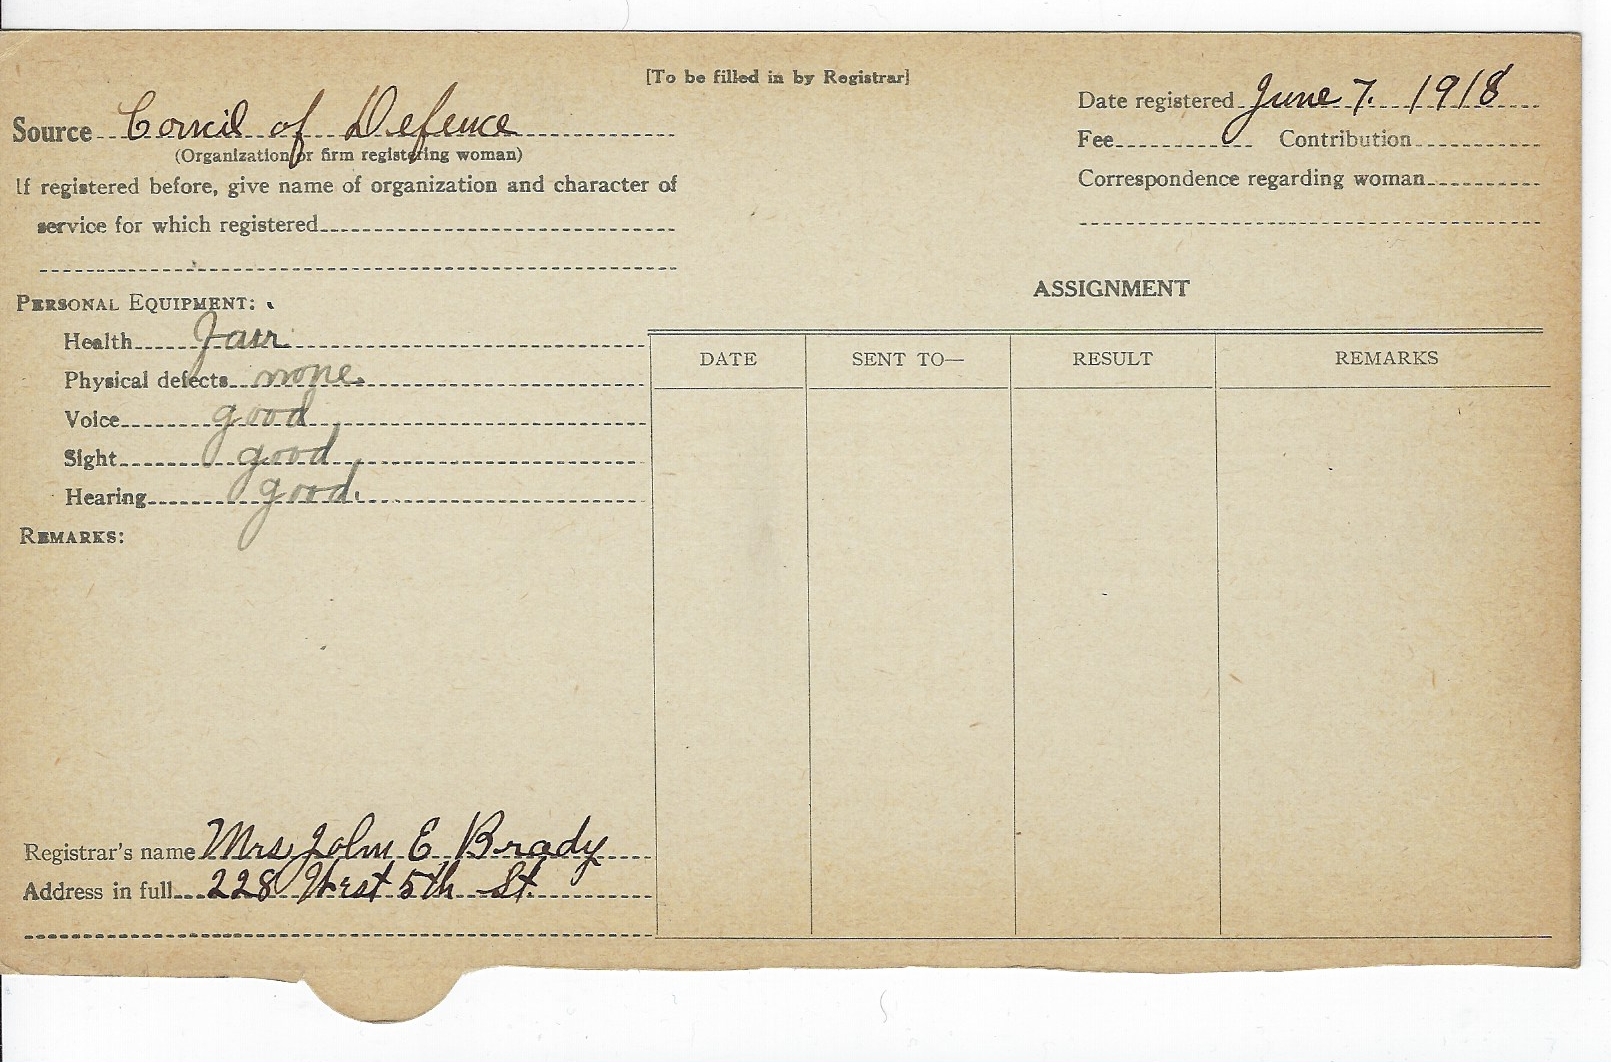 [To be filled in by Registrar]
Source Council of Defence
(Organization or firm registering woman)
If registered before, give name of organization and character of
service for which registered
Date registered June 7. 1918
Fee Contribution
Correspondence regarding woman
PERSONAL EQUIPMENT:
Health Fair
Physical defects none.
Voice good
Sight good
Hearing good.
REMARKS:
ASSIGNMENT
DATE SENT TO— RESULT REMARKS
Registrar's name Mrs John E Brady
Address in full 228 West 5th St.